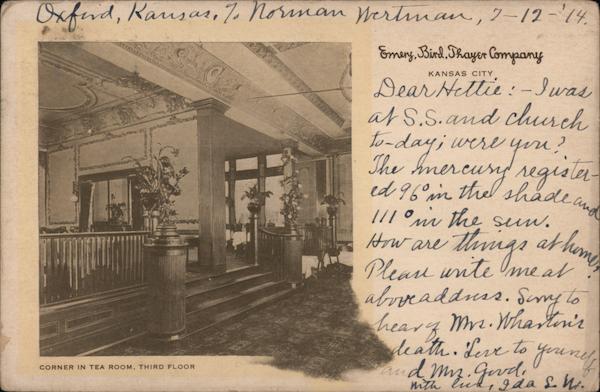 Oxford, Kansas, % Norman Wertman, 7-12-'14.
Emery, Bird, Thayer Company
KANSAS CITY
Dear Hettie:- I was
at S.S. and church
to-day; were you?
The mercury register-
ed 96° in the shade and
111° in the sun.
How are things at home?
Please write me at
above address. Sorry to
hear of Mrs. Wharton's
death. Love to yourself
and Mrs. Good.
Ida E.
CORNER IN TEA ROOM, THIRD FLOOR